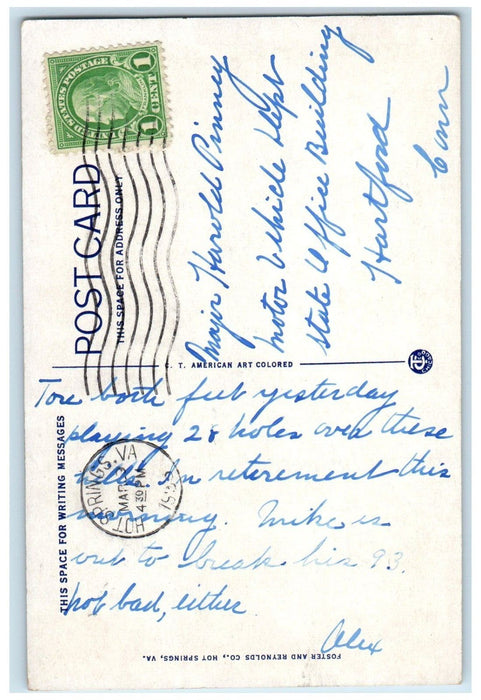 UNITED STATES POSTAGE
1 CENT 1
POST CARD
THIS SPACE FOR ADDRESS ONLY
Major Harold Pinney
Motor Vehicle Dept
State Office Building
Hartford
Conn
C. T. AMERICAN ART COLORED
THIS SPACE FOR WRITING MESSAGES
Tore both feet yesterday
playing 28 holes over these
hills. In retirement this
morning. Mike is
out to break his 93.
not bad, either
Alex
HOT SPRINGS, VA
MAR
4 30 PM
FOSTER AND REYNOLDS CO., HOT SPRINGS, VA.